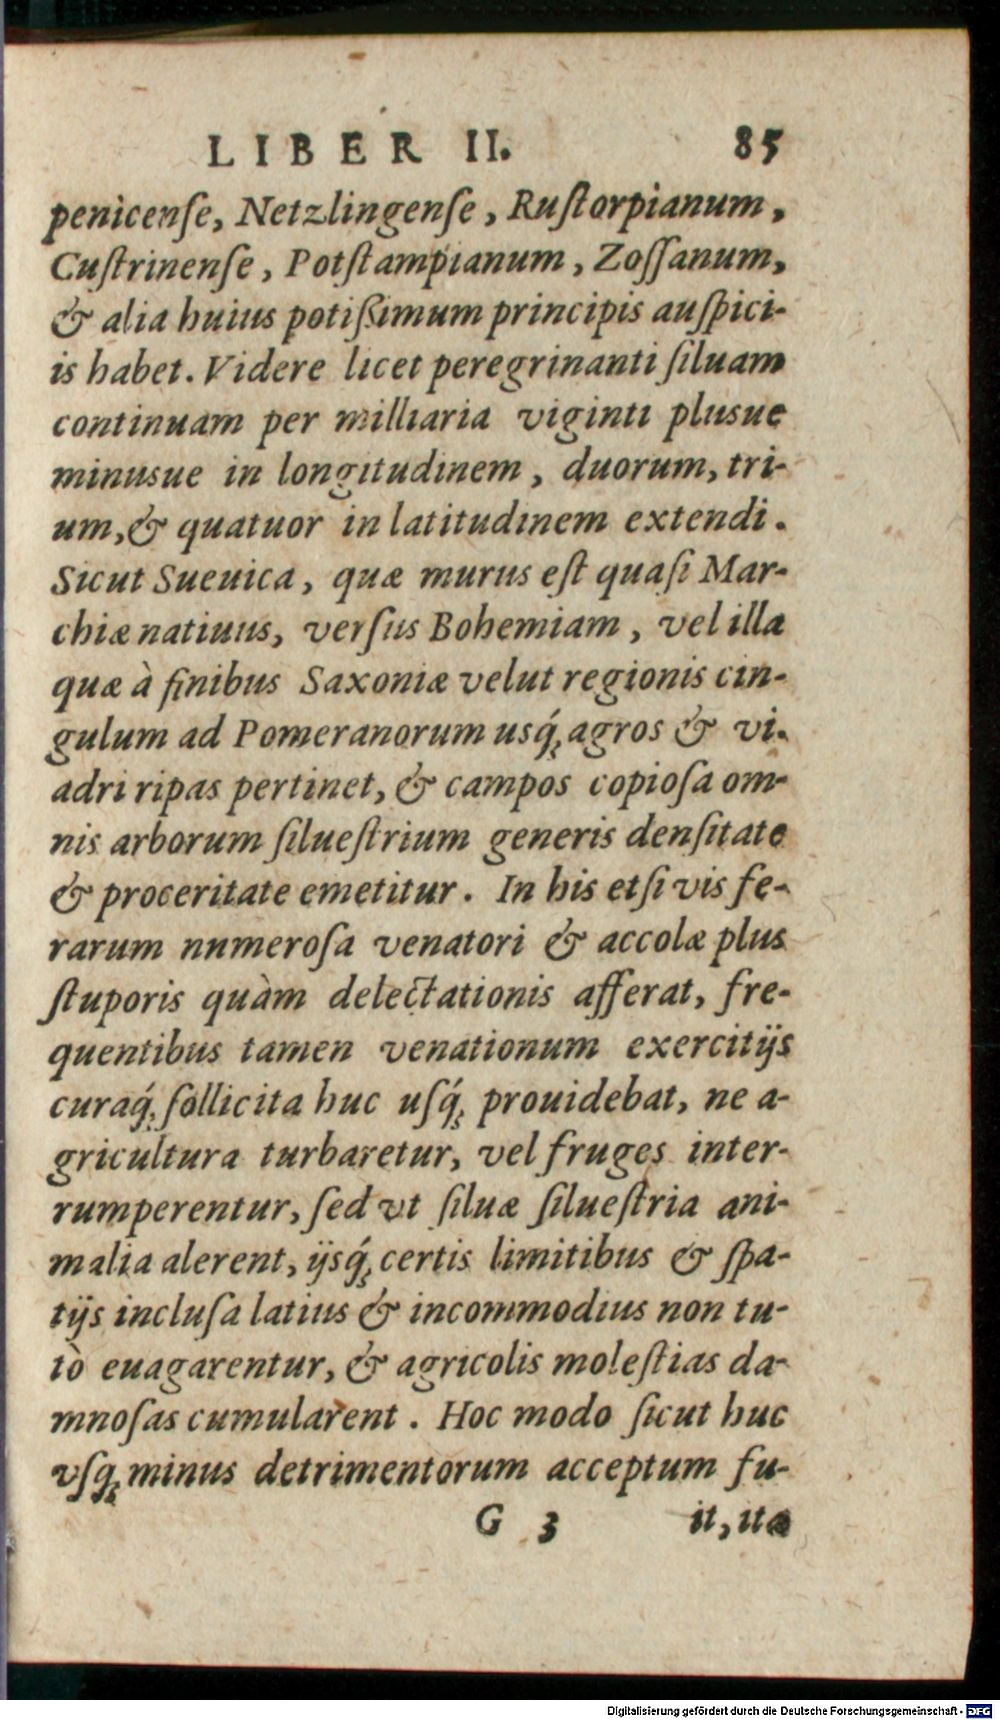 LIBER II. 85
penicenſe, Netzlingenſe, Ruſtorpianum,
Cuſtrinenſe, Potſtampianum, Zoſſanum,
& alia huius potiſsimum principis auſpici-
is habet. Videre licet peregrinanti ſiluam
continuam per milliaria viginti plusue
minusue in longitudinem, duorum, tri-
um, & quatuor in latitudinem extendi.
Sicut Sueuica, quæ murus eſt quaſi Mar-
chiæ natiuus, verſus Bohemiam, vel illa
quæ à finibus Saxoniæ velut regionis cin-
gulum ad Pomeranorum usq́; agros & vi-
adri ripas pertinet, & campos copioſa om-
nis arborum ſilueſtrium generis denſitate
& proceritate emetitur. In his etſi vis fe-
rarum nnmeroſa venatori & accolæ plus
ſtuporis quàm delectationis afferat, fre-
quentibus tamen venationum exercitijs
curaq́; ſollicita huc uſq́; prouidebat, ne a-
gricultura turbaretur, vel fruges inter-
rumperentur, ſed vt ſiluæ ſilueſtria ani-
malia alerent, ijsq́; certis limitibus & ſpa-
tijs incluſa latius & incommodius non tu-
tò euagarentur, & agricolis moleſtias da-
mnoſas cumularent. Hoc modo ſicut huc
vſq; minus detrimentorum acceptum fu-
G 3 it, ita
Digitalisierung gefördert durch die Deutsche Forschungsgemeinschaft - DFG